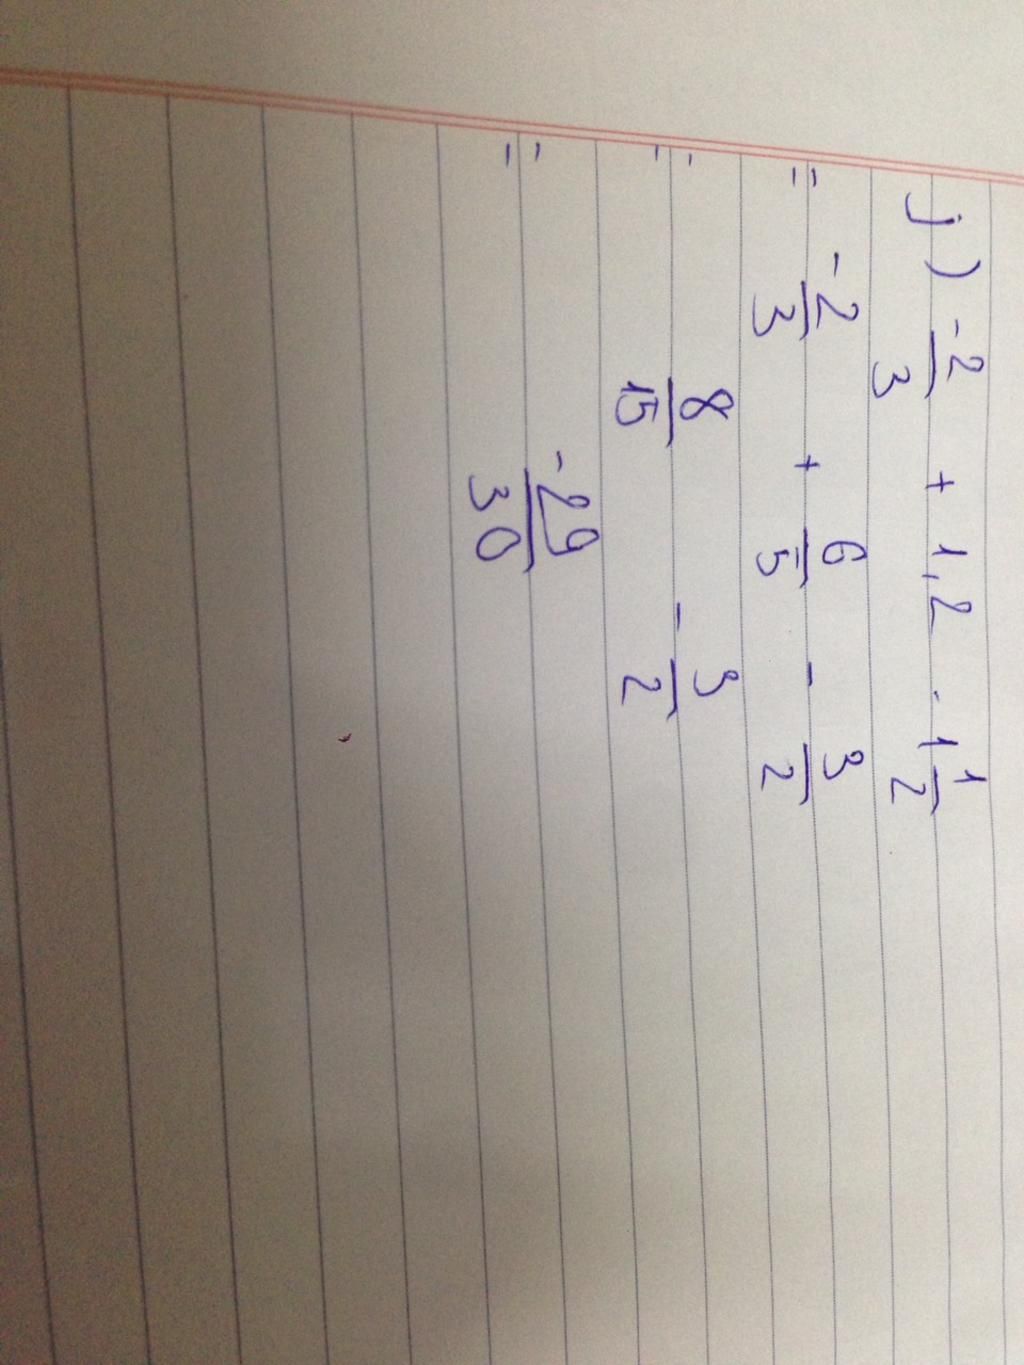 j) -2/3 + 1,2 - 1 1/2
= -2/3 + 6/5 - 3/2
= 8/15 - 3/2
= -29/30